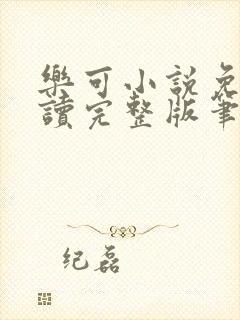 樂可小說免
讀完整版筆
纪磊